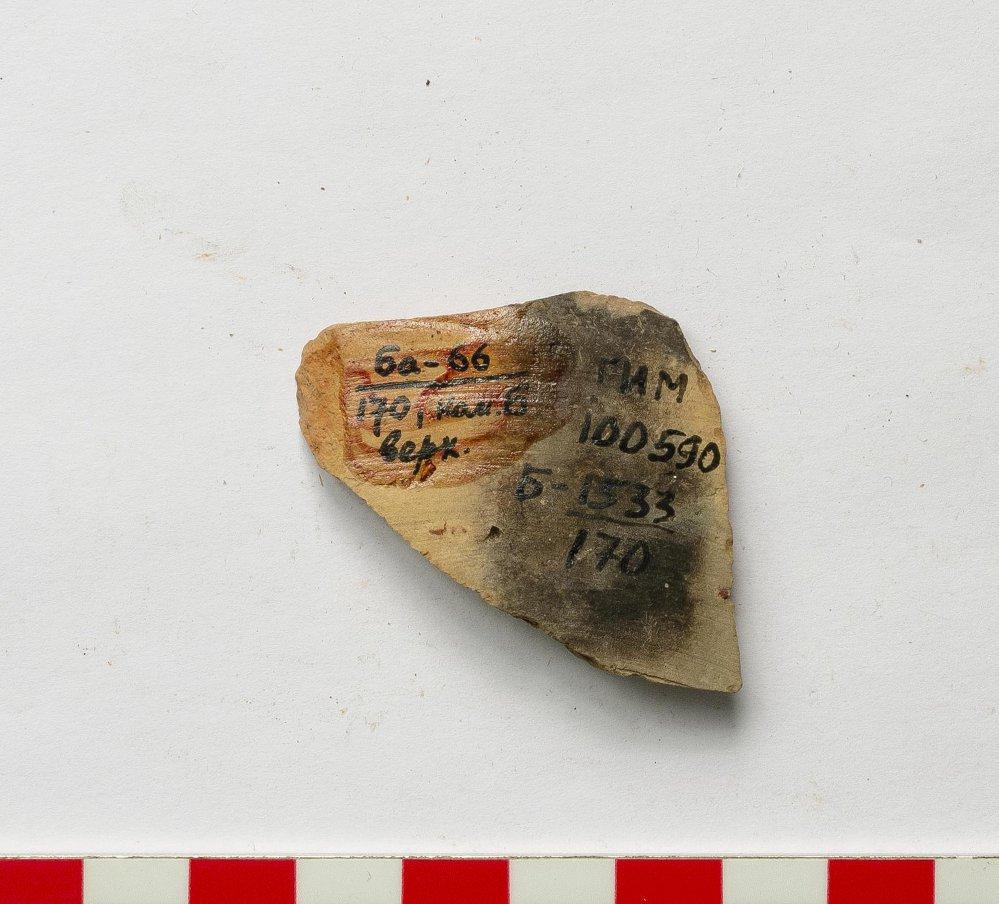 ба-66
170, пом. б
верх.
ГИМ
100590
Б-1533
170